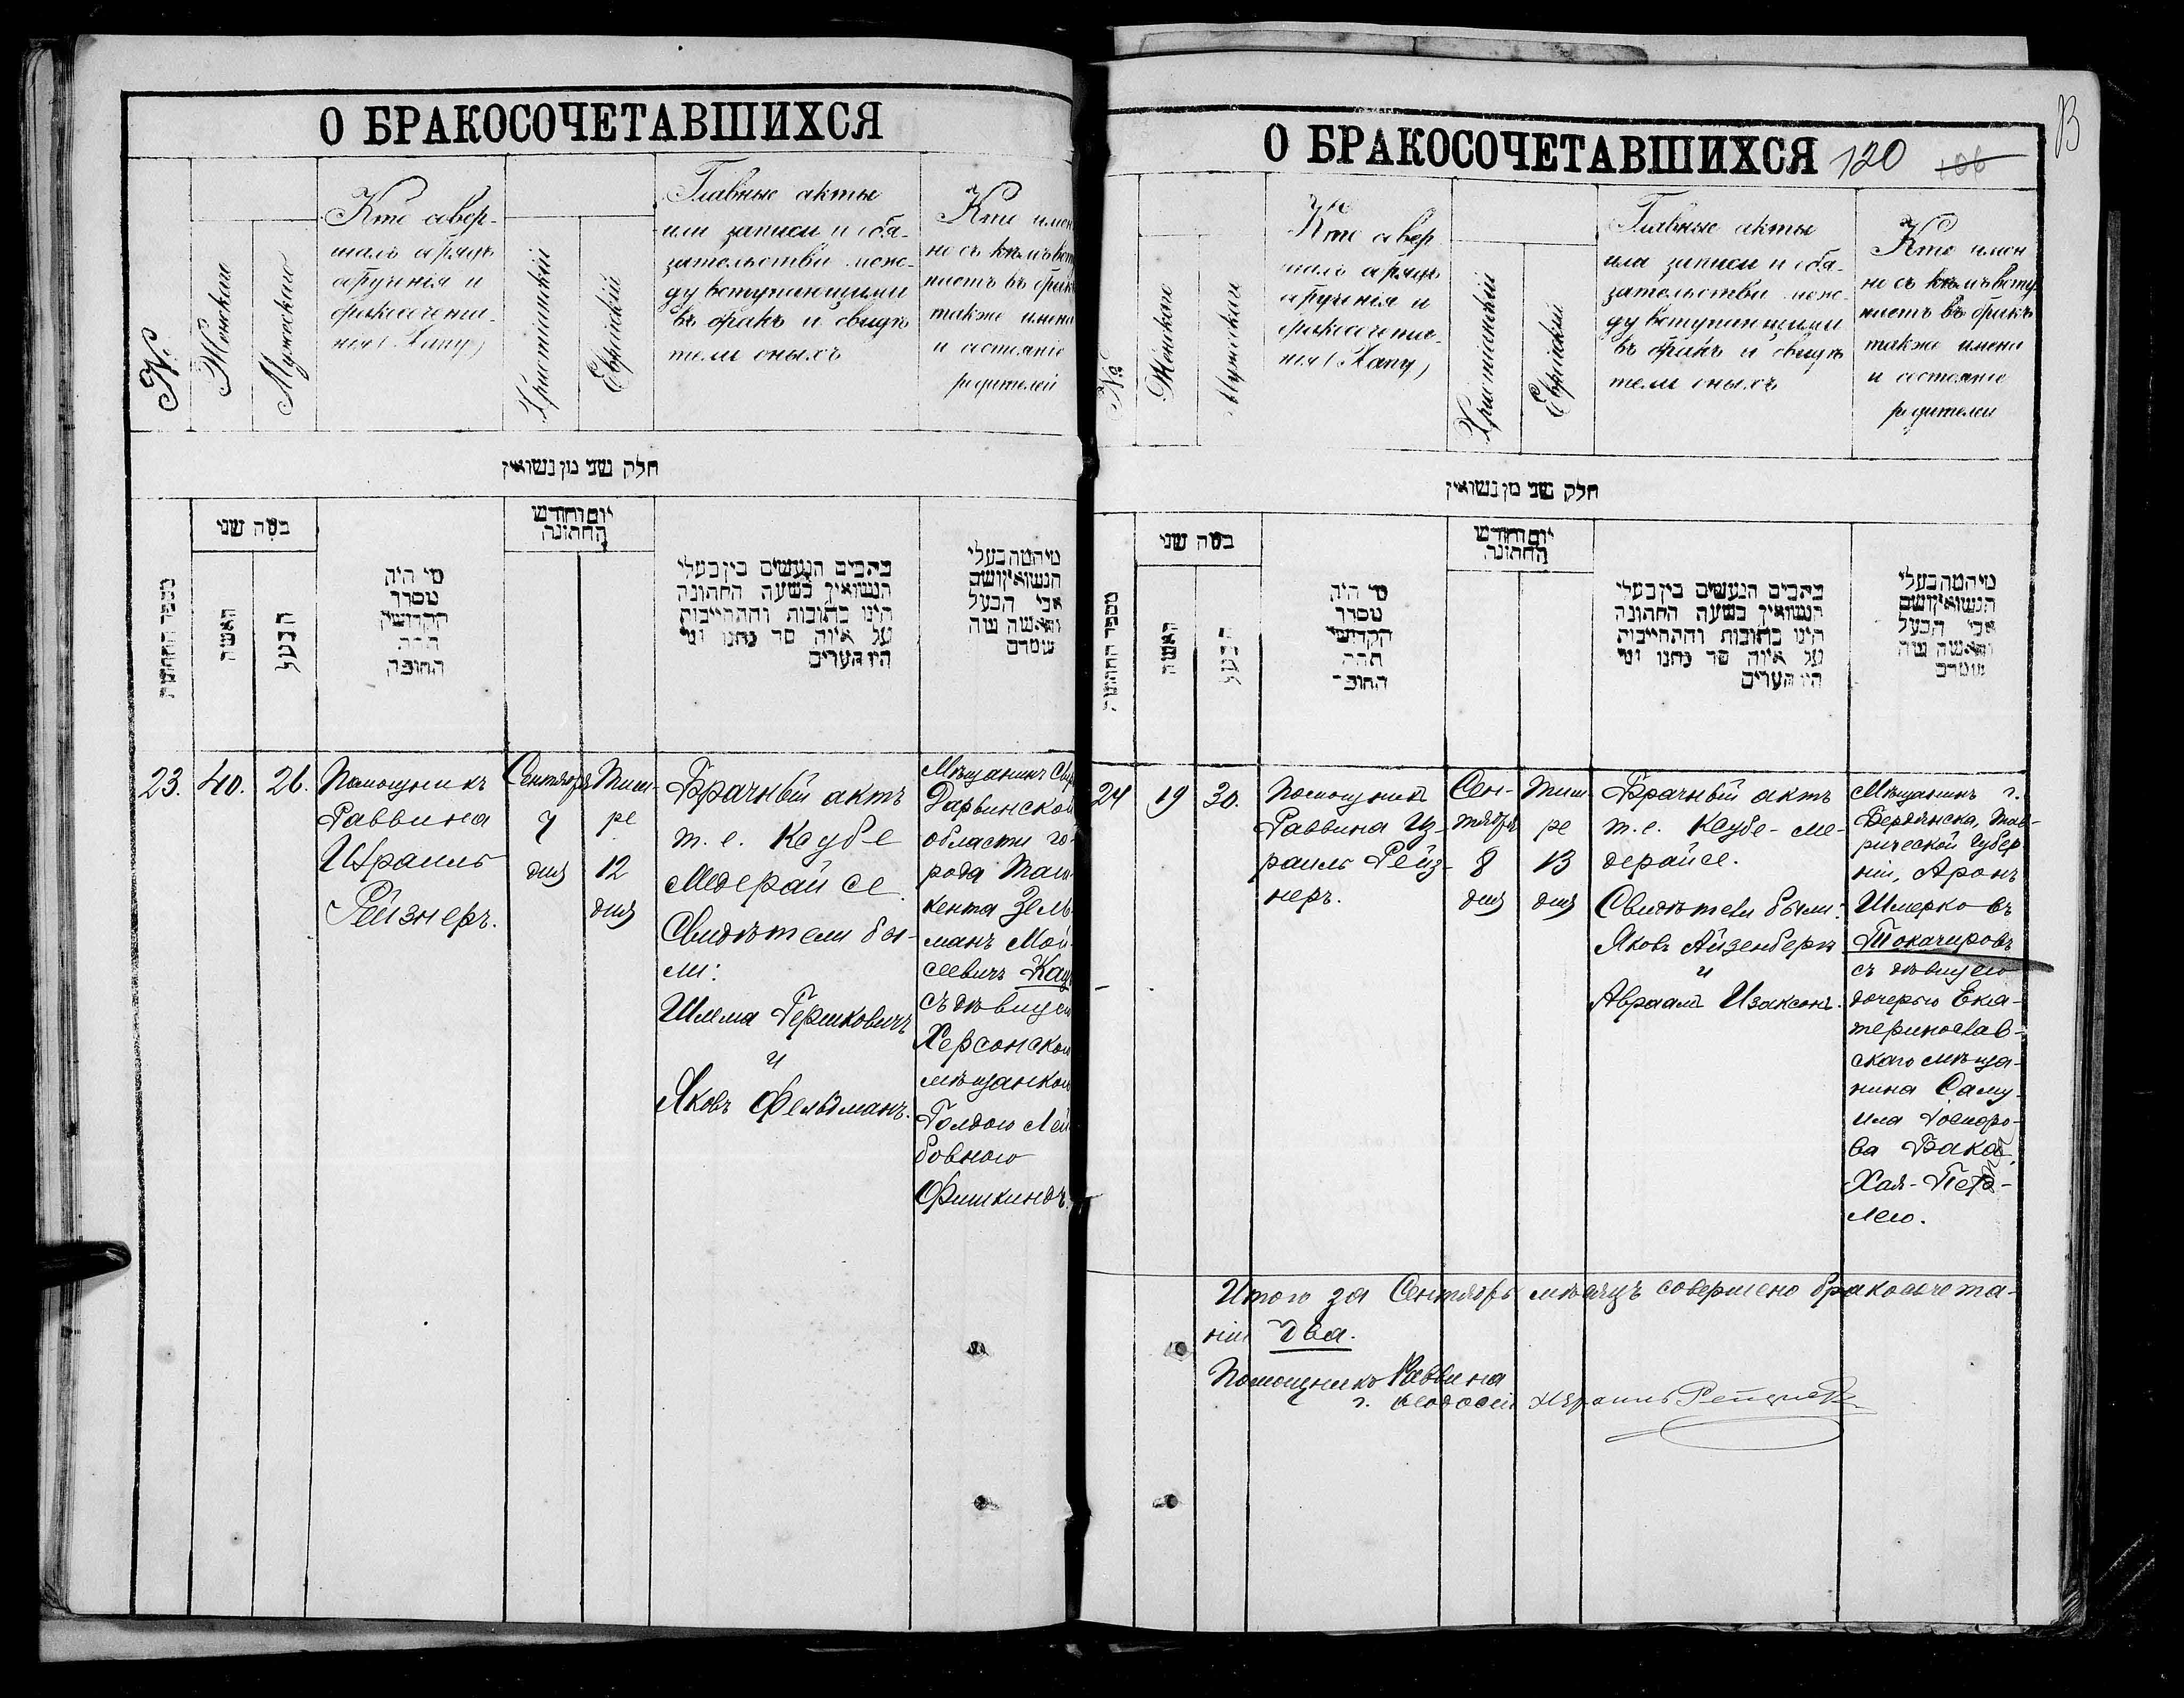 О БРАКОСОЧЕТАВШИХСЯ
№
Женскаго
Мужескаго
Кто совер-
шалъ обрядъ
обрученія и
бракосочета-
нія (Хупу)
Христіанскій
Еврейскій
Главные акты
или записи и обя-
зательства меж-
ду вступающими
въ бракъ и свидѣ
тели оныхъ
Кто имен
но съ кѣмъ всту
паетъ въ бракъ
также имена
и состояніе
родителей
חלק שני מן נשואין
מספר החתונות
כמה שני
האשה
הבעל
מי היה
מסדר
הקדושין
תחת
החופה
יום וחודש
החתונה
מכתבים הנעשים בין בעלי
הנשואין בשעה החתונה
היינו כתובות והתחייבות
על איזה סך נתנו ומי
היו העדים
מי המה בעלי
הנשואין ושם
אבי הבעל
והאשה
23.
40.
26.
Помощникъ
Раввина
Израиль
Рейзнеръ.
Сентября
7
дня
Тиш-
ре
12
дня
Брачный актъ
т. е. Ксубе
Медерайсе.
Свидѣтели бы-
ли:
Шлема Гершковичъ
и
Яковъ Фельдманъ.
Мѣщанинъ Сыр
Дарьинской
области го-
рода Таш-
кента Зель-
манъ Мой-
сеевичъ Кац
съ дѣвицей
Херсонской
мѣщанкой
Голдою Лей
бовною
Фишкиндъ.
О БРАКОСОЧЕТАВШИХСЯ
120
106
В
№
Женскаго
Мужескаго
Кто совер
шалъ обрядъ
обрученія и
бракосочета-
нія (Хупу)
Христіанскій
Еврейскій
Главные акты
или записи и обя-
зательства меж-
ду вступающими
въ бракъ и свидѣ
тели оныхъ
Кто имен
но съ кѣмъ всту
паетъ въ бракъ
также имена
и состояніе
родителей
חלק שני מן נשואין
מספר החתונות
כמה שני
האשה
הבעל
מי היה
מסדר
הקדושין
תחת
החופה
יום וחודש
החתונה
מכתבים הנעשים בין בעלי
הנשואין בשעה החתונה
היינו כתובות והתחייבות
על איזה סך נתנו ומי
היו העדים
מי המה בעלי
הנשואין ושם
אבי הבעל
והאשה
24
19
30.
Помощникъ
Раввина Из-
раиль Рейз-
неръ.
Сен-
тября
8
дня
Тиш
ре
13
дня
Брачный актъ
т. е. Ксубе-ме-
дерайсе.
Свидѣтели были:
Яковъ Айзенбергъ
и
Авраамъ Изаксонъ.
Мѣщанинъ г.
Бердянска, Тав-
рической Губер
ніи, Аронъ
Шмерковъ
Токачировъ
съ дѣвицею
дочерью Ека-
теринослав-
скаго мѣща-
нина Саму-
ила Іосифо-
ва Бака,
Хая-Пер-
лею.
Итого за Сентябрь мѣсяцъ совершено бракосочета-
ній два.
Помощникъ Раввина
г. Ѳеодосіи Израиль Рейзнеръ